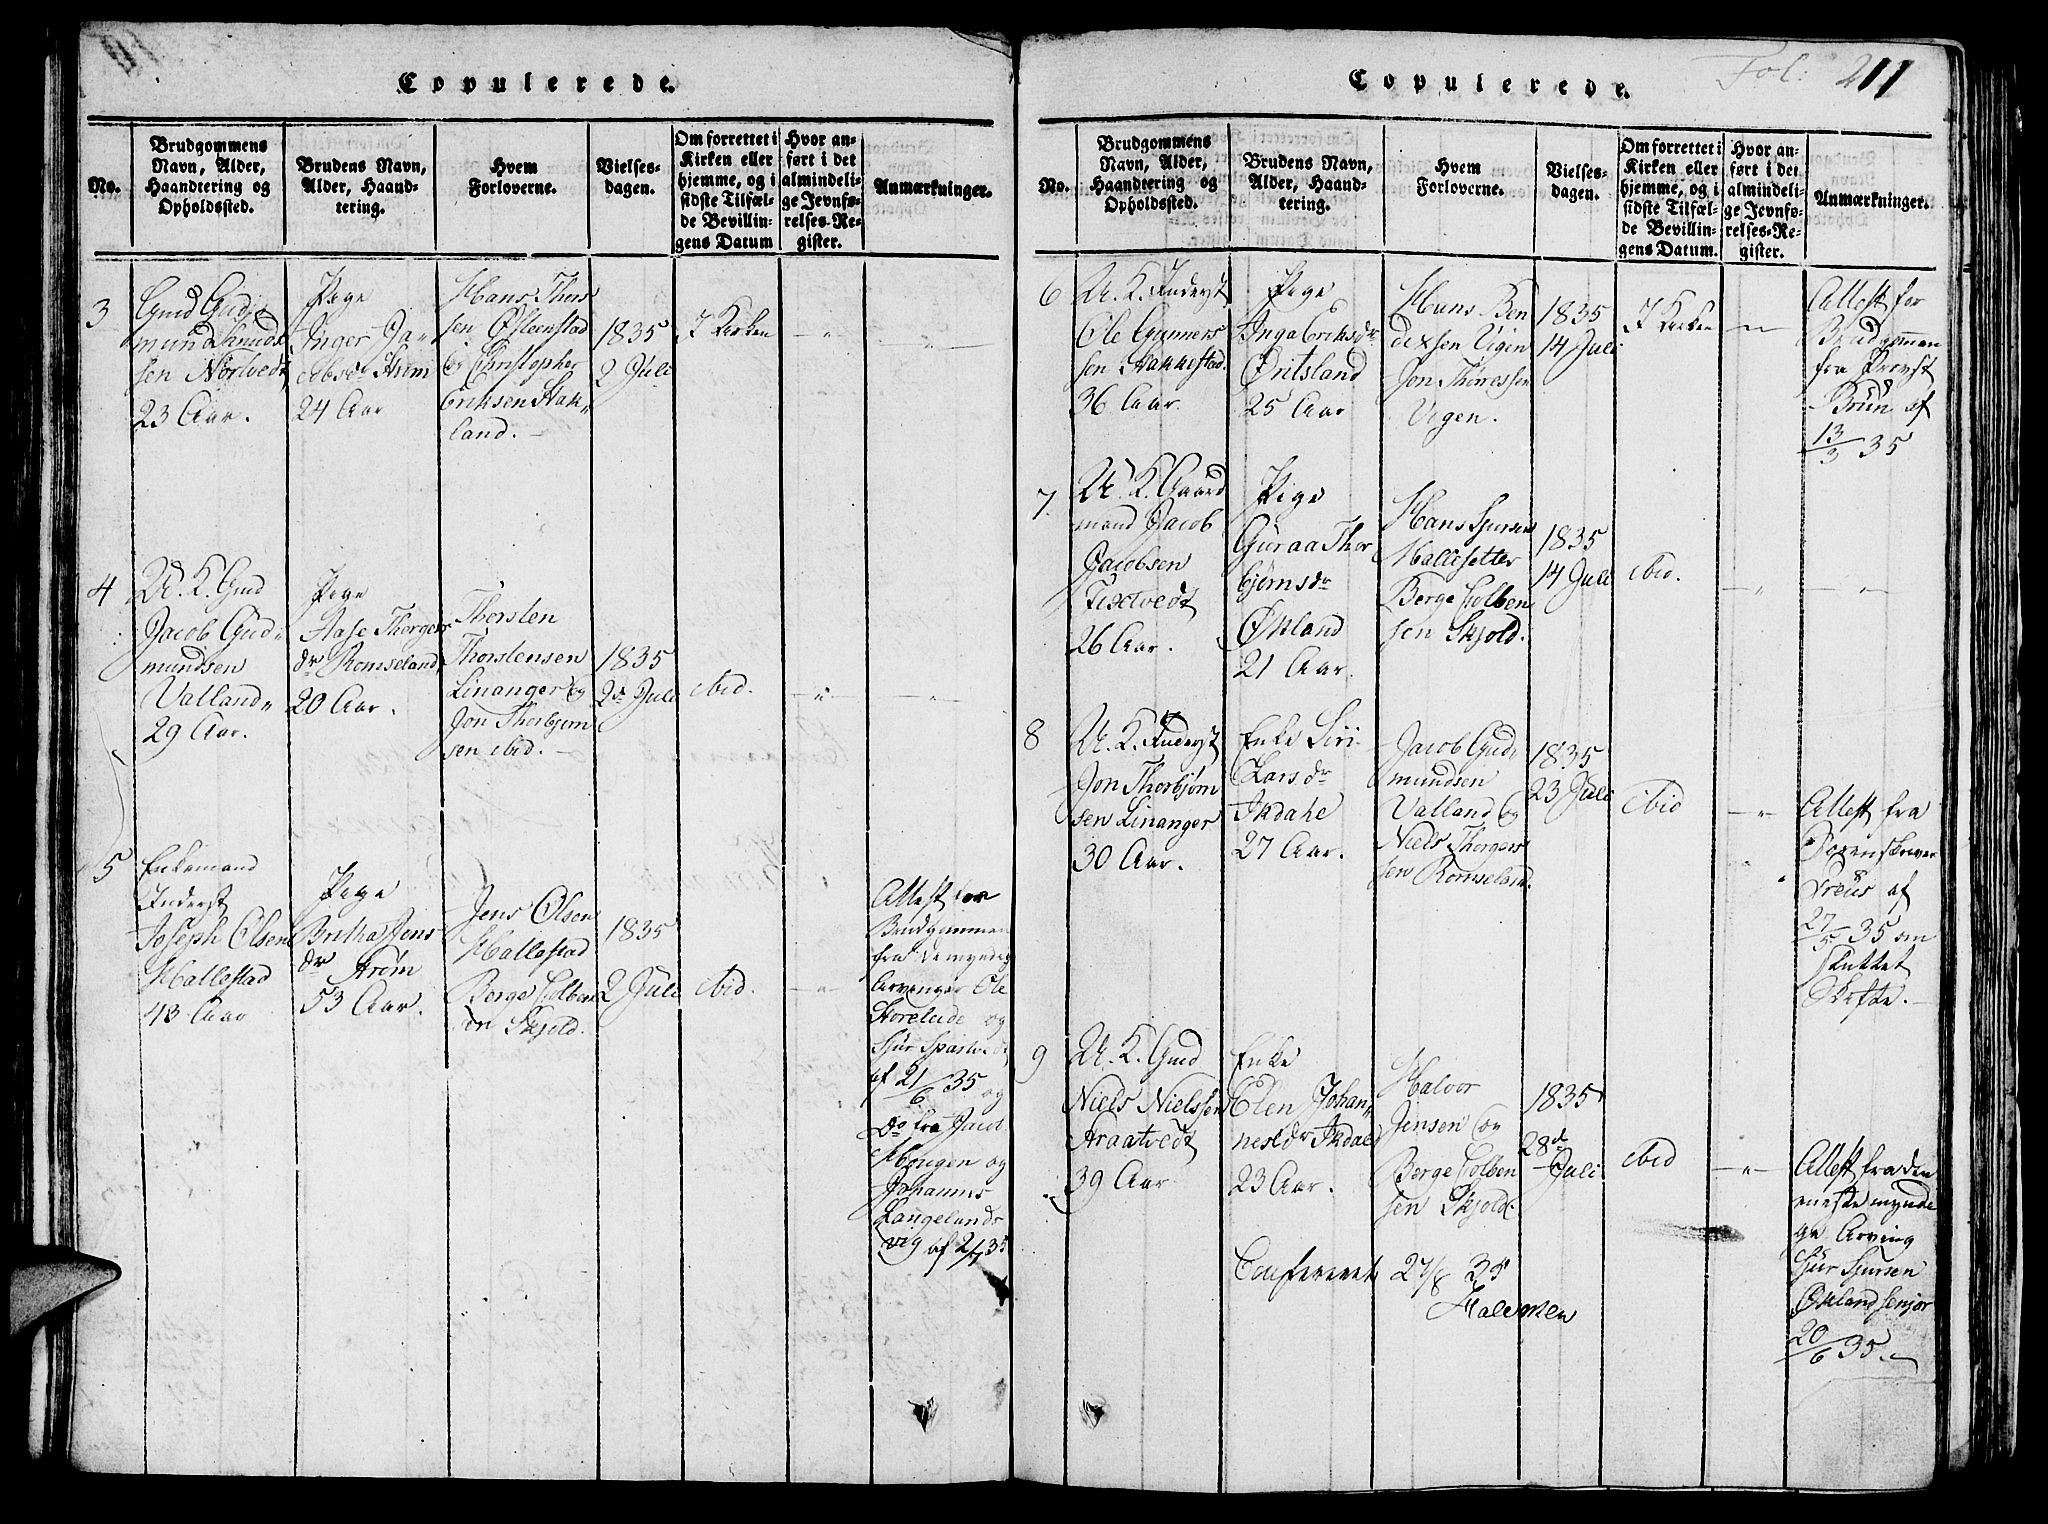 Copulerede.
No.
Brudgommens
Navn, Alder,
Haandtering og
Opholdssted.
Brudens Navn,
Alder, Haand-
tering.
Hvem
Forloverne.
Vielses-
dagen.
Om forrettet i
Kirken eller
hjemme, og i
sidste Tilfæl-
de Bevillin-
gens Datum
Hvor an-
ført i det
almindeli-
ge Jevnfø-
relses-Re-
gister.
Anmærkninger.
3
Gmd Gud
mund Knuds
sen Nörtvedt
23 Aar.
Pige
Inger Ja-
cobsdr Strøm
24 Aar
Hans Thors
sen Østeenstad
og Christopher
Eriksen Stak-
land. -
1835
2 Juli
I Kirken
4
U. K. Gmd
Jacob Gud-
mundsen
Valland
29 Aar.
Pige
Aase Thorgers
dr Romseland
20 Aar.
Thorsten
Thorstensen
Linanger og
Jon Thorbjørn
sen ibid. -
1835
2de Juli
ibid.
5
Enkemand
Inderst
Joseph Olsen
Hallestad
43 Aar
Pige
Britha Jens
dr Strøm
53 Aar.
Jens Olsen
Hallestad
Berge Colben
sen Skjold.
1835
2 Juli
ibid.
Attest for
Brudgommen
fra de myndige
Arvinger Ole
og
Sjur
af 21/6 35 og
Do fra Jacob
Hougen og
Johannes
Langelands
vig af 2/7 35
Copulerede.
Fol: 211
No.
Brudgommens
Navn, Alder,
Haandtering og
Opholdssted.
Brudens Navn,
Alder, Haand-
tering.
Hvem
Forloverne.
Vielses-
dagen.
Om forrettet i
Kirken eller
hjemme, og i
sidste Tilfæl-
de Bevillin-
gens Datum.
Hvor an-
ført i det
almindeli-
ge Jevnfø-
relses-Re-
gister.
Anmærkninger.
6
U. K. Inderst
Ole Gunners
sen Stakkestad
36 Aar.
Pige
Inga Eriksdr
Øritsland
25 Aar
Hans Ben
dixsen Vigen
Jon Thoressen
Vigen.
1835
14 Juli
I Kirken
Attest for
Brudgommen
fra Provst
Brun af
13/3 35
7.
U. K. Gaard
mand Jacob
Jacobsen
Tixlvedt
26 Aar.
Pige
Guraa Thor
bjørnsdr
Økland
21 Aar.
Hans Sjursen
Hallesetter
Berge Colben
sen Skjold.
1835
14 Juli
ibid.
8
U. K. Inderst
Jon Thorbjørn
sen Linanger
30 Aar.
Enke Siri
Larsdr
Ikdahe
27 Aar.
Jacob Gud
mundsen
Valland og
Niels Thorgers
sen Romseland.
1835
23 Juli
ibid
Attest fra
Sorenskriver
af
27/5 35 om
sluttet
Skifte. -
9
U. K. Gmd
Niels Nielssen
Kraatvedt
39 Aar
Enke
Elen Johan
nesdr Ikdal
23 Aar.
Halvor
Jensen og
Berge Colben
sen Skjold.
1835
28d
Juli
ibid
Attest fra den
eneste mynde
ge Arving
Sjur Sjursen
Økland senjor
20/6 35.
Confereret 27/8 35
Halvorsen